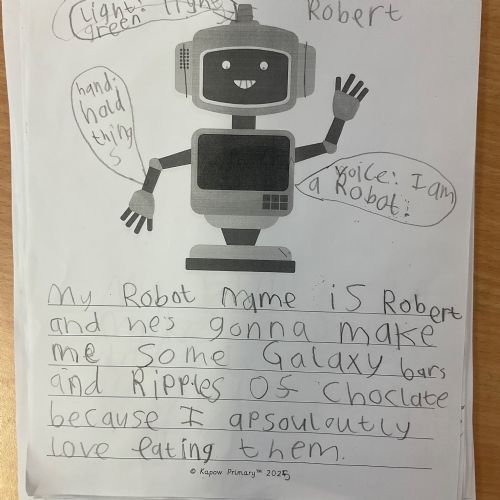 Light:
green
Robert
hand:
hold
thing
s
voice: I am
a Robot.
My Robot name is Robert
and he's gonna make
me some Galaxy bars
and Ripples OS Choclate
because I apsouloutly
love eating them.
© Kapow Primary™ 2025